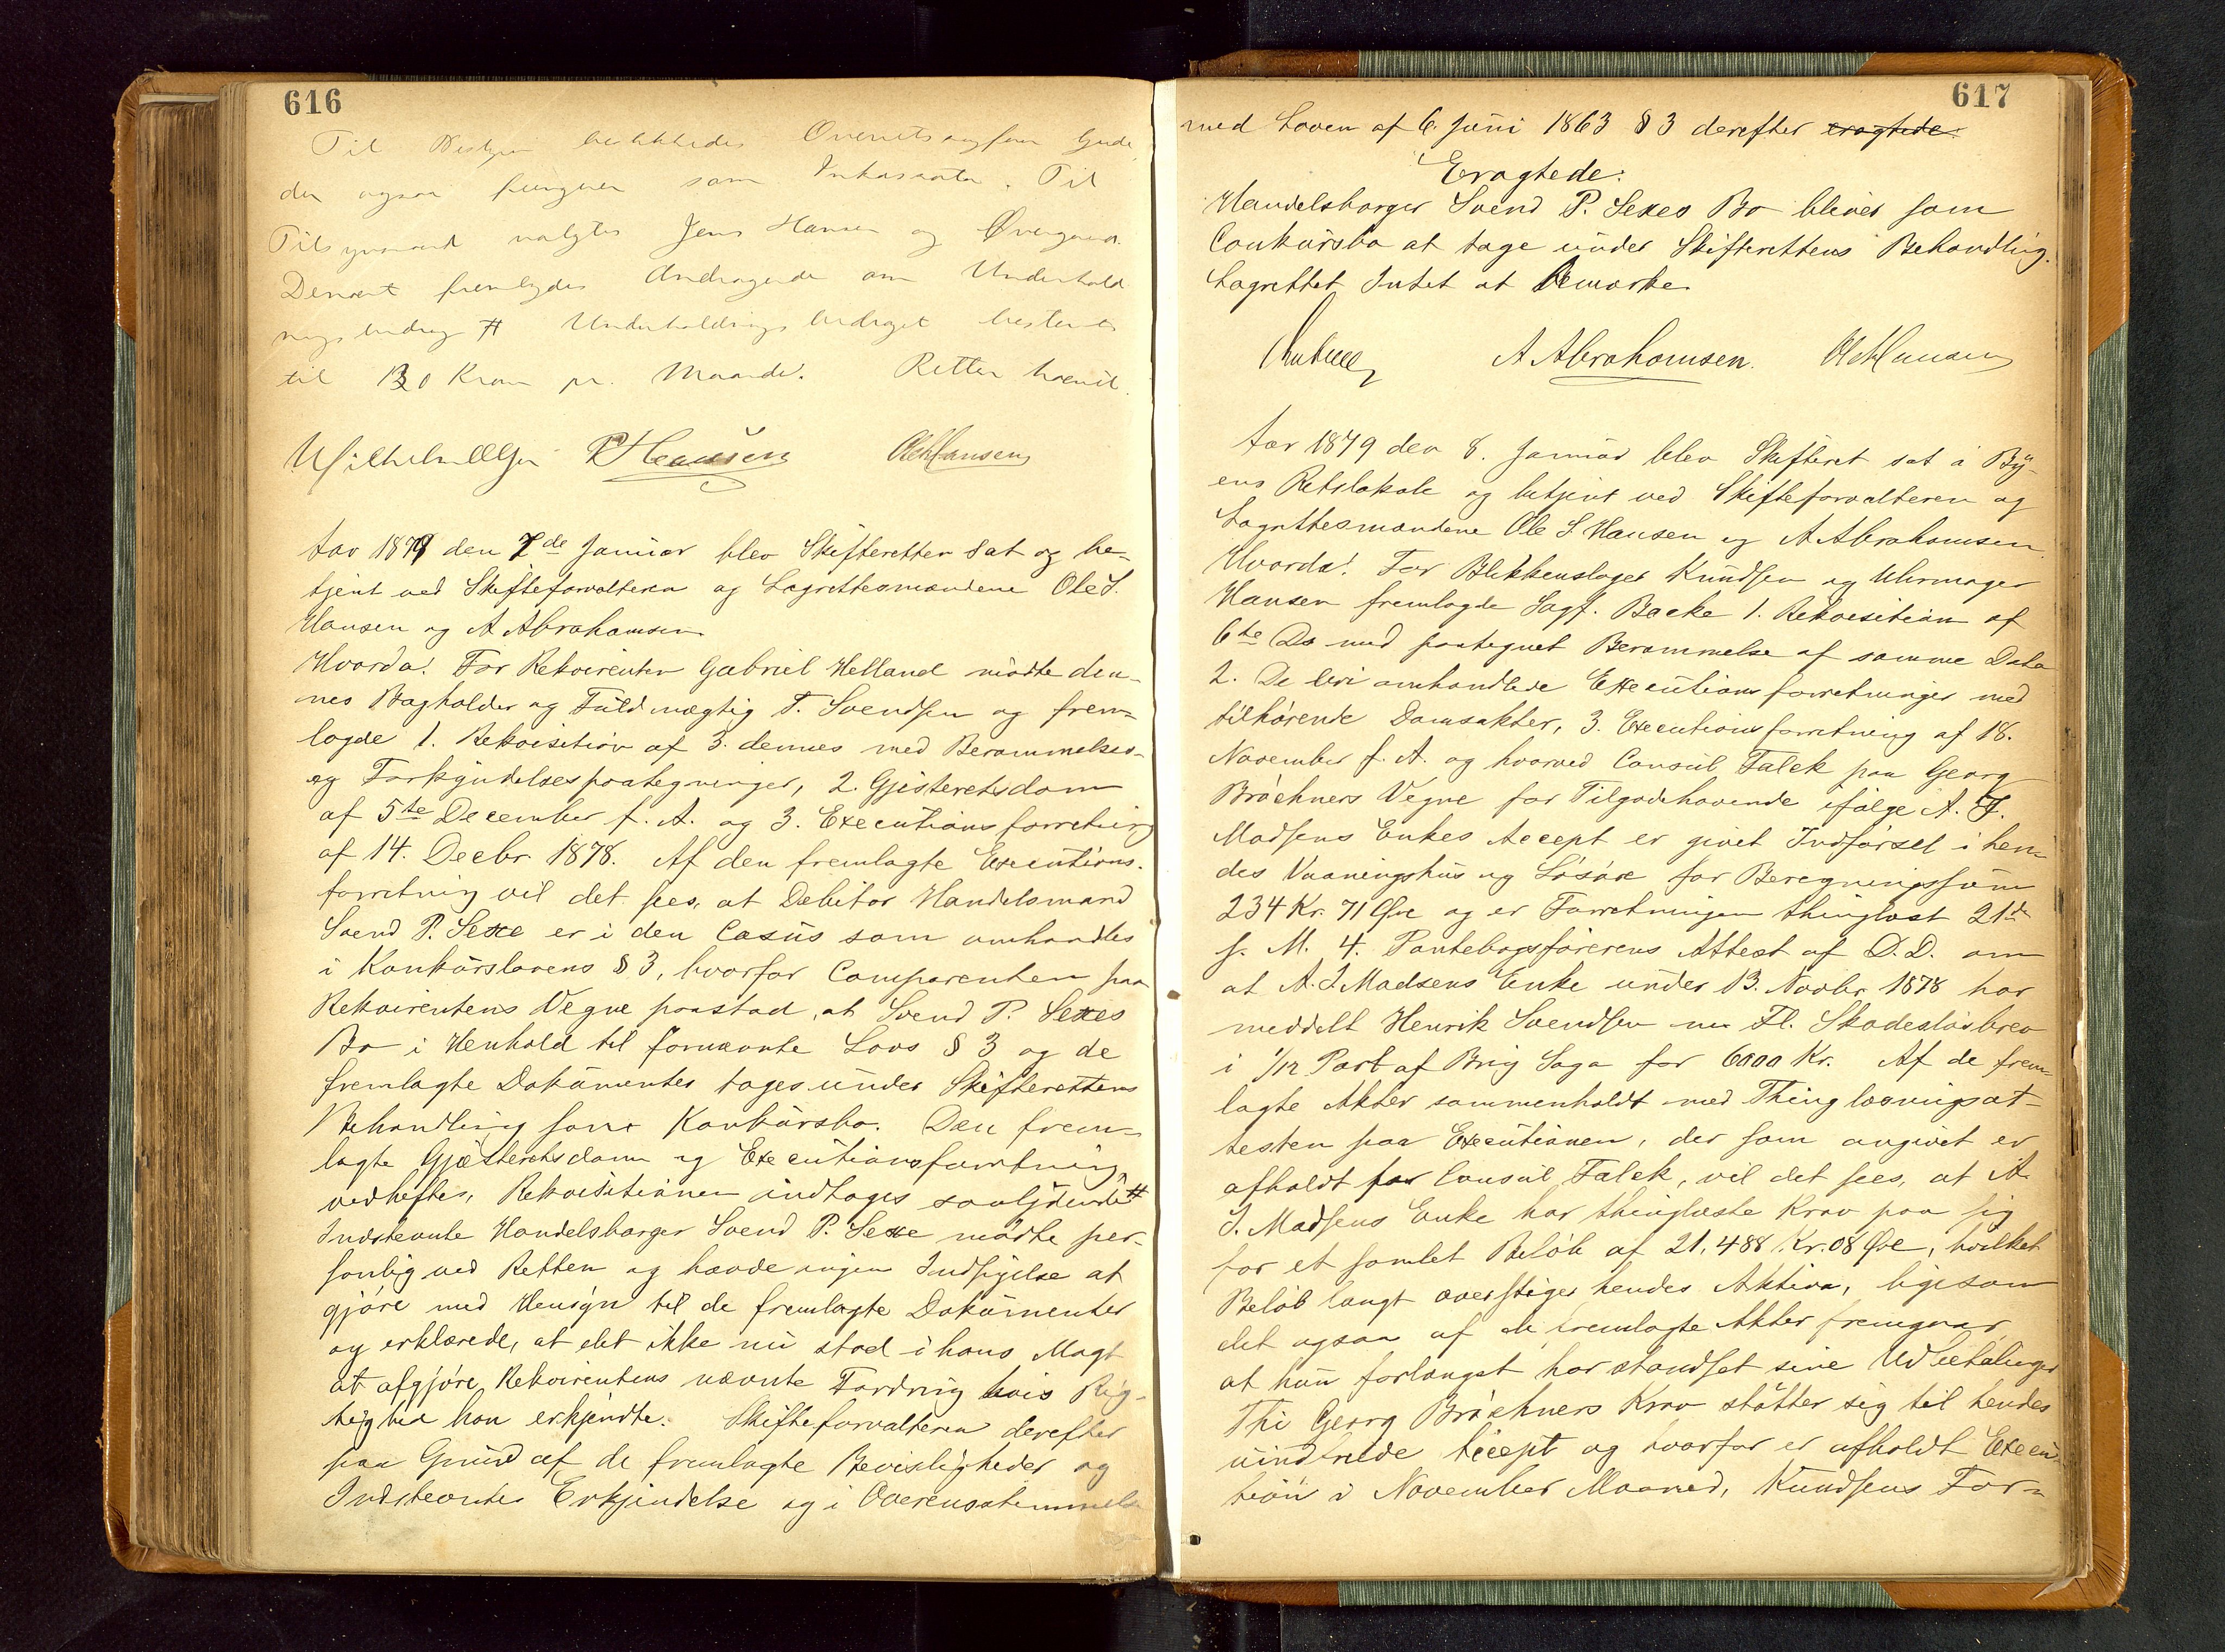 616
Til Bestyrer beskikkedes Overretssagfører Gude
der ogsaa fungerer som Inkassator. Til
Tilsynsmænd valgtes Jens Hansen og Øvergaard.
Dernæst fremlagdes Andragende om Underhold
ningsbidrag # Underholdningsbidraget bestemtes
til 120 Kroner pr. Maaned. Retten hævet.
P Hansen Ole S Hansen
Aar 1879 den 7de Januar blev Skifteretten sat og be-
tjent ved Skifteforvalteren og Lagrettesmændene Ole S.
Hansen og A Abrahamsen
Hvorda! For Rekvirenten Gabriel Helland mødte den-
nes Bogholder og Fuldmægtig T. Svendsen og frem-
lagde 1. Rekvisition af 3. dennes med Berammelses-
og Forkyndelsespaategninger, 2. Gjesteretsdom
af 5te December f. A. og 3. Executionsforretning
af 14. Decbr. 1878. Af den fremlagte Executions-
forretning vil det sees, at Debitor Handelsmand
Svend P. Sexe er i den Casus som omhandles
i Konkurslovens § 3, hvorfor Comparenten paa
Rekvirentens Vegne paastod, at Svend P. Sexes
Bo i Henhold til fornævnte Lovs § 3 og de
fremlagte Dokumenter tages under Skifterettens
Behandling som Konkursbo. Den frem-
lagte Gjæsteretsdom og Executionsforretning
vedheftes, Rekvisitionen indtages saalydende #
Indstevnte Handelsborger Svend P. Sexe mødte per-
sonlig ved Retten og havde ingen Indsigelse at
gjøre med Hensyn til de fremlagte Dokumenter
og erklærede, at det ikke nu stod i hans Magt
at afgjøre Rekvirentens nævnte Fordring hvis Rig-
tighed han erkjendte. Skifteforvalteren derefter
paa Grund af de fremlagte Bevisligheder og
Indstevntes Erkjendelse og i Overensstemmelse
617
med Loven af 6. Juni 1863 § 3 derefter eragtede:
Eragtede:
Handelsborger Svend P. Sexes Bo bliver som
Conkursbo at tage under Skifterettens Behandling.
Lagrettet Intet at bemærke.
A Abrahamsen. Ole S Hansen
Aar 1879 den 8. Januar blev Skifteret sat i By-
ens Retslokale og betjent ved Skifteforvalteren og
Lagrettesmændene Ole S Hansen og A Abrahamsen.
Hvorda! For Blikkenslager Knudsen og Uhrmager
Hansen fremlagde Sagf. Backe 1. Rekvisition af
6te Ds med paategnet Berammelse af samme Dato
2. De heri omhandlede Executionsforretninger med
tilhørende Domsakter, 3. Executionsforretning af 18.
November f. A. og hvorved Consul Falck paa Georg
Bröchners Vegne for Tilgodehavende ifølge A. J.
Madsens Enkes Accept er givet Indførsel i hen-
des Vaaningshus og Løsøre for Beregningssum
234 Kr. 71 Øre og er Forretningen thinglæst 21de
s. M. 4. Pantebogsførerens Attest af D.D. om
at A. J Madsens Enke under 13. Novbr. 1878 har
meddelt Henrik Svendsen m Fl. Skadesløsbrev
i 1/12 Part af Brig Saga for 6000 Kr. Af de frem-
lagte Akter sammenholdt med Thinglæsningsat-
testen paa Executionen, der som angivet er
afholdt for Consul Falck, vil det sees, at A.
J. Madsens Enke har thinglæste Krav paa sig
for et samlet Beløb af 21.488 Kr. 08 Øre, hvilket
Beløb langt overstiger hendes Aktiva, ligesom
det ogsaa af de fremlagte Akter fremgaar
at hun forlængst har standset sine Udbetalinger
Thi Georg Bröchners Krav støtter sig til hendes
uindfriede Accept og hvorfor er afholdt Execu-
tion i November Maaned, Knudsens For-